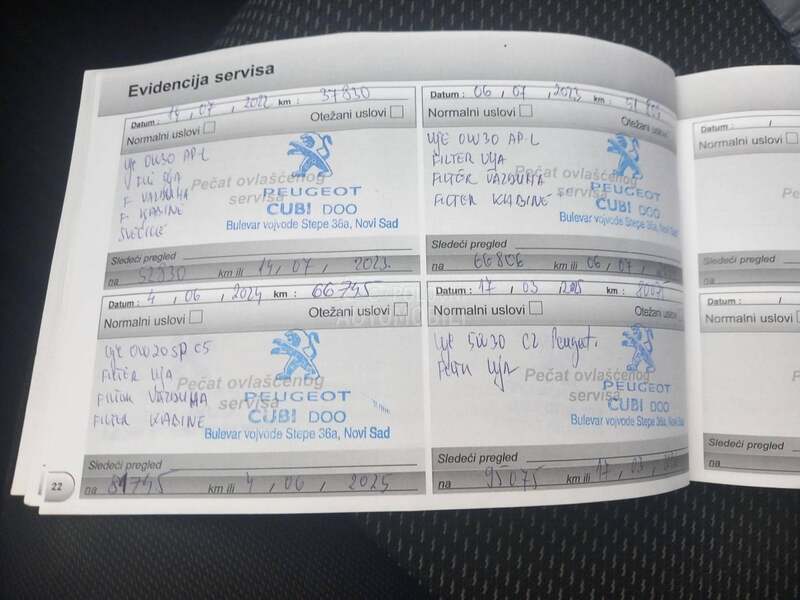 Evidencija servisa
Datum : 14 , 07 , 2022 km : 37830
Normalni uslovi Otežani uslovi
UJE 0W30 AP-L
UJA
F. VAZDUHA
F. KABINE
SVEĆICE
Pečat ovlašćenog
servisa
PEUGEOT
CUBI DOO
Bulevar vojvode Stepe 36a, Novi Sad
Sledeći pregled
na 52830 km ili 14 , 07 , 2023.
Datum : 06 , 07 , 2023 km :
Normalni uslovi Otežani uslovi
UJE 0W30 AP-L
FILTER UJA
FILTER VAZDUHA
FILTER KABINE
Pečat ovlašćenog
servisa
PEUGEOT
CUBI DOO
Bulevar vojvode Stepe 36a, Novi Sad
Sledeći pregled
na 66806 km ili 06 , 07 ,
Datum : 4 , 06 , 2024 km : 66745
Normalni uslovi Otežani uslovi
UJE 0W20 SP C5
FILTER UJA
FILTER VAZDUHA
FILTER KABINE
Pečat ovlašćenog
servisa
PEUGEOT
CUBI DOO
Bulevar vojvode Stepe 36a, Novi Sad
Sledeći pregled
na 81745 km ili 4 , 06 , 2025
Datum : 17 , 03 , 2025 km : 80075
Normalni uslovi Otežani uslovi
UJE 5W30 C2 Peugeot.
UJA
Pečat ovlašćenog
servisa
PEUGEOT
CUBI DOO
Bulevar vojvode Stepe 36a, Novi Sad
Sledeći pregled
na 95075 km ili 17 , 03 ,
22
Datum : /
Normalni uslovi
Sledeći pregled
na
Datum : /
Normalni uslovi
Sledeći pregled
na